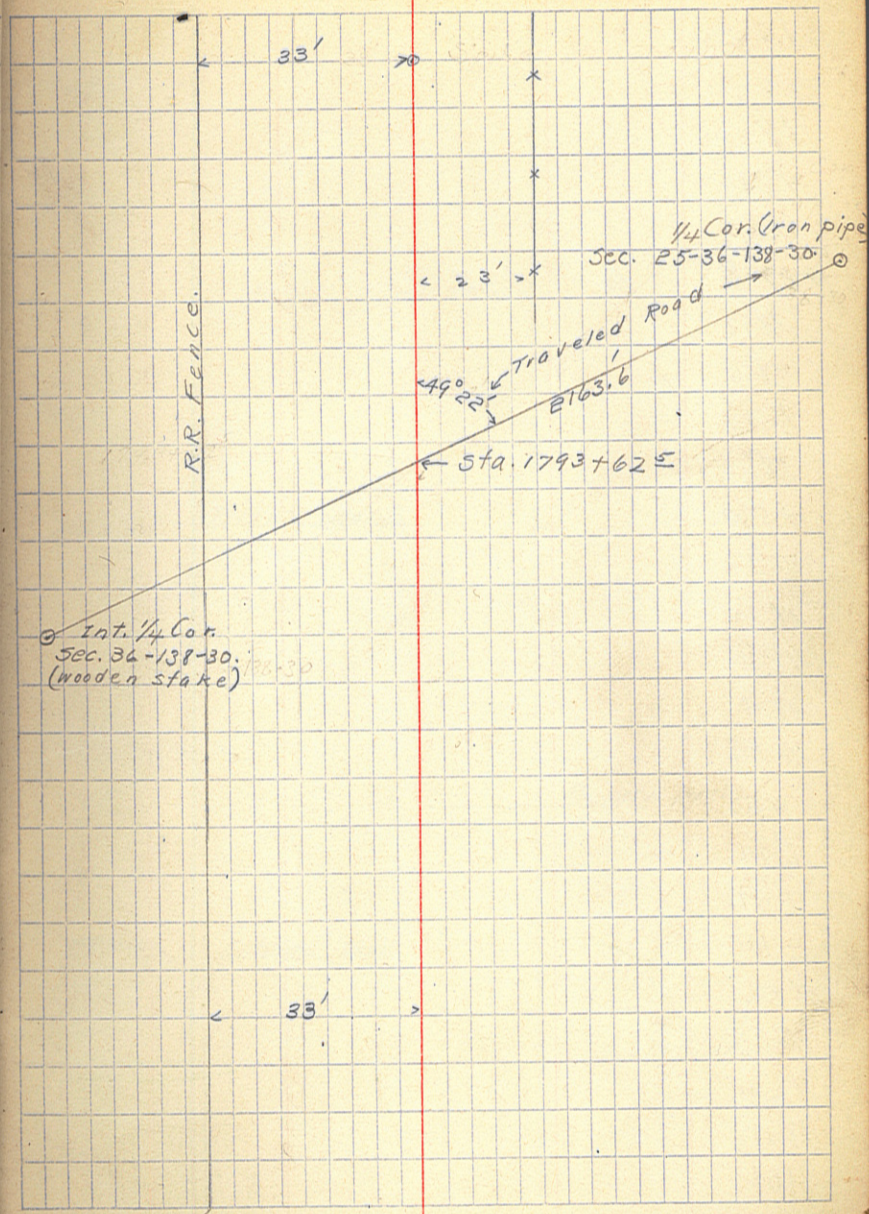 33'
1/4 Cor. (Iron pipe
Sec. 25-36-138-30.
23'
R.R. Fence.
Traveled Road
49° 22'
2163.6'
Sta. 1793+62 5
Int. 1/4 Cor.
Sec. 36-138-30.
(wooden stake)
33'